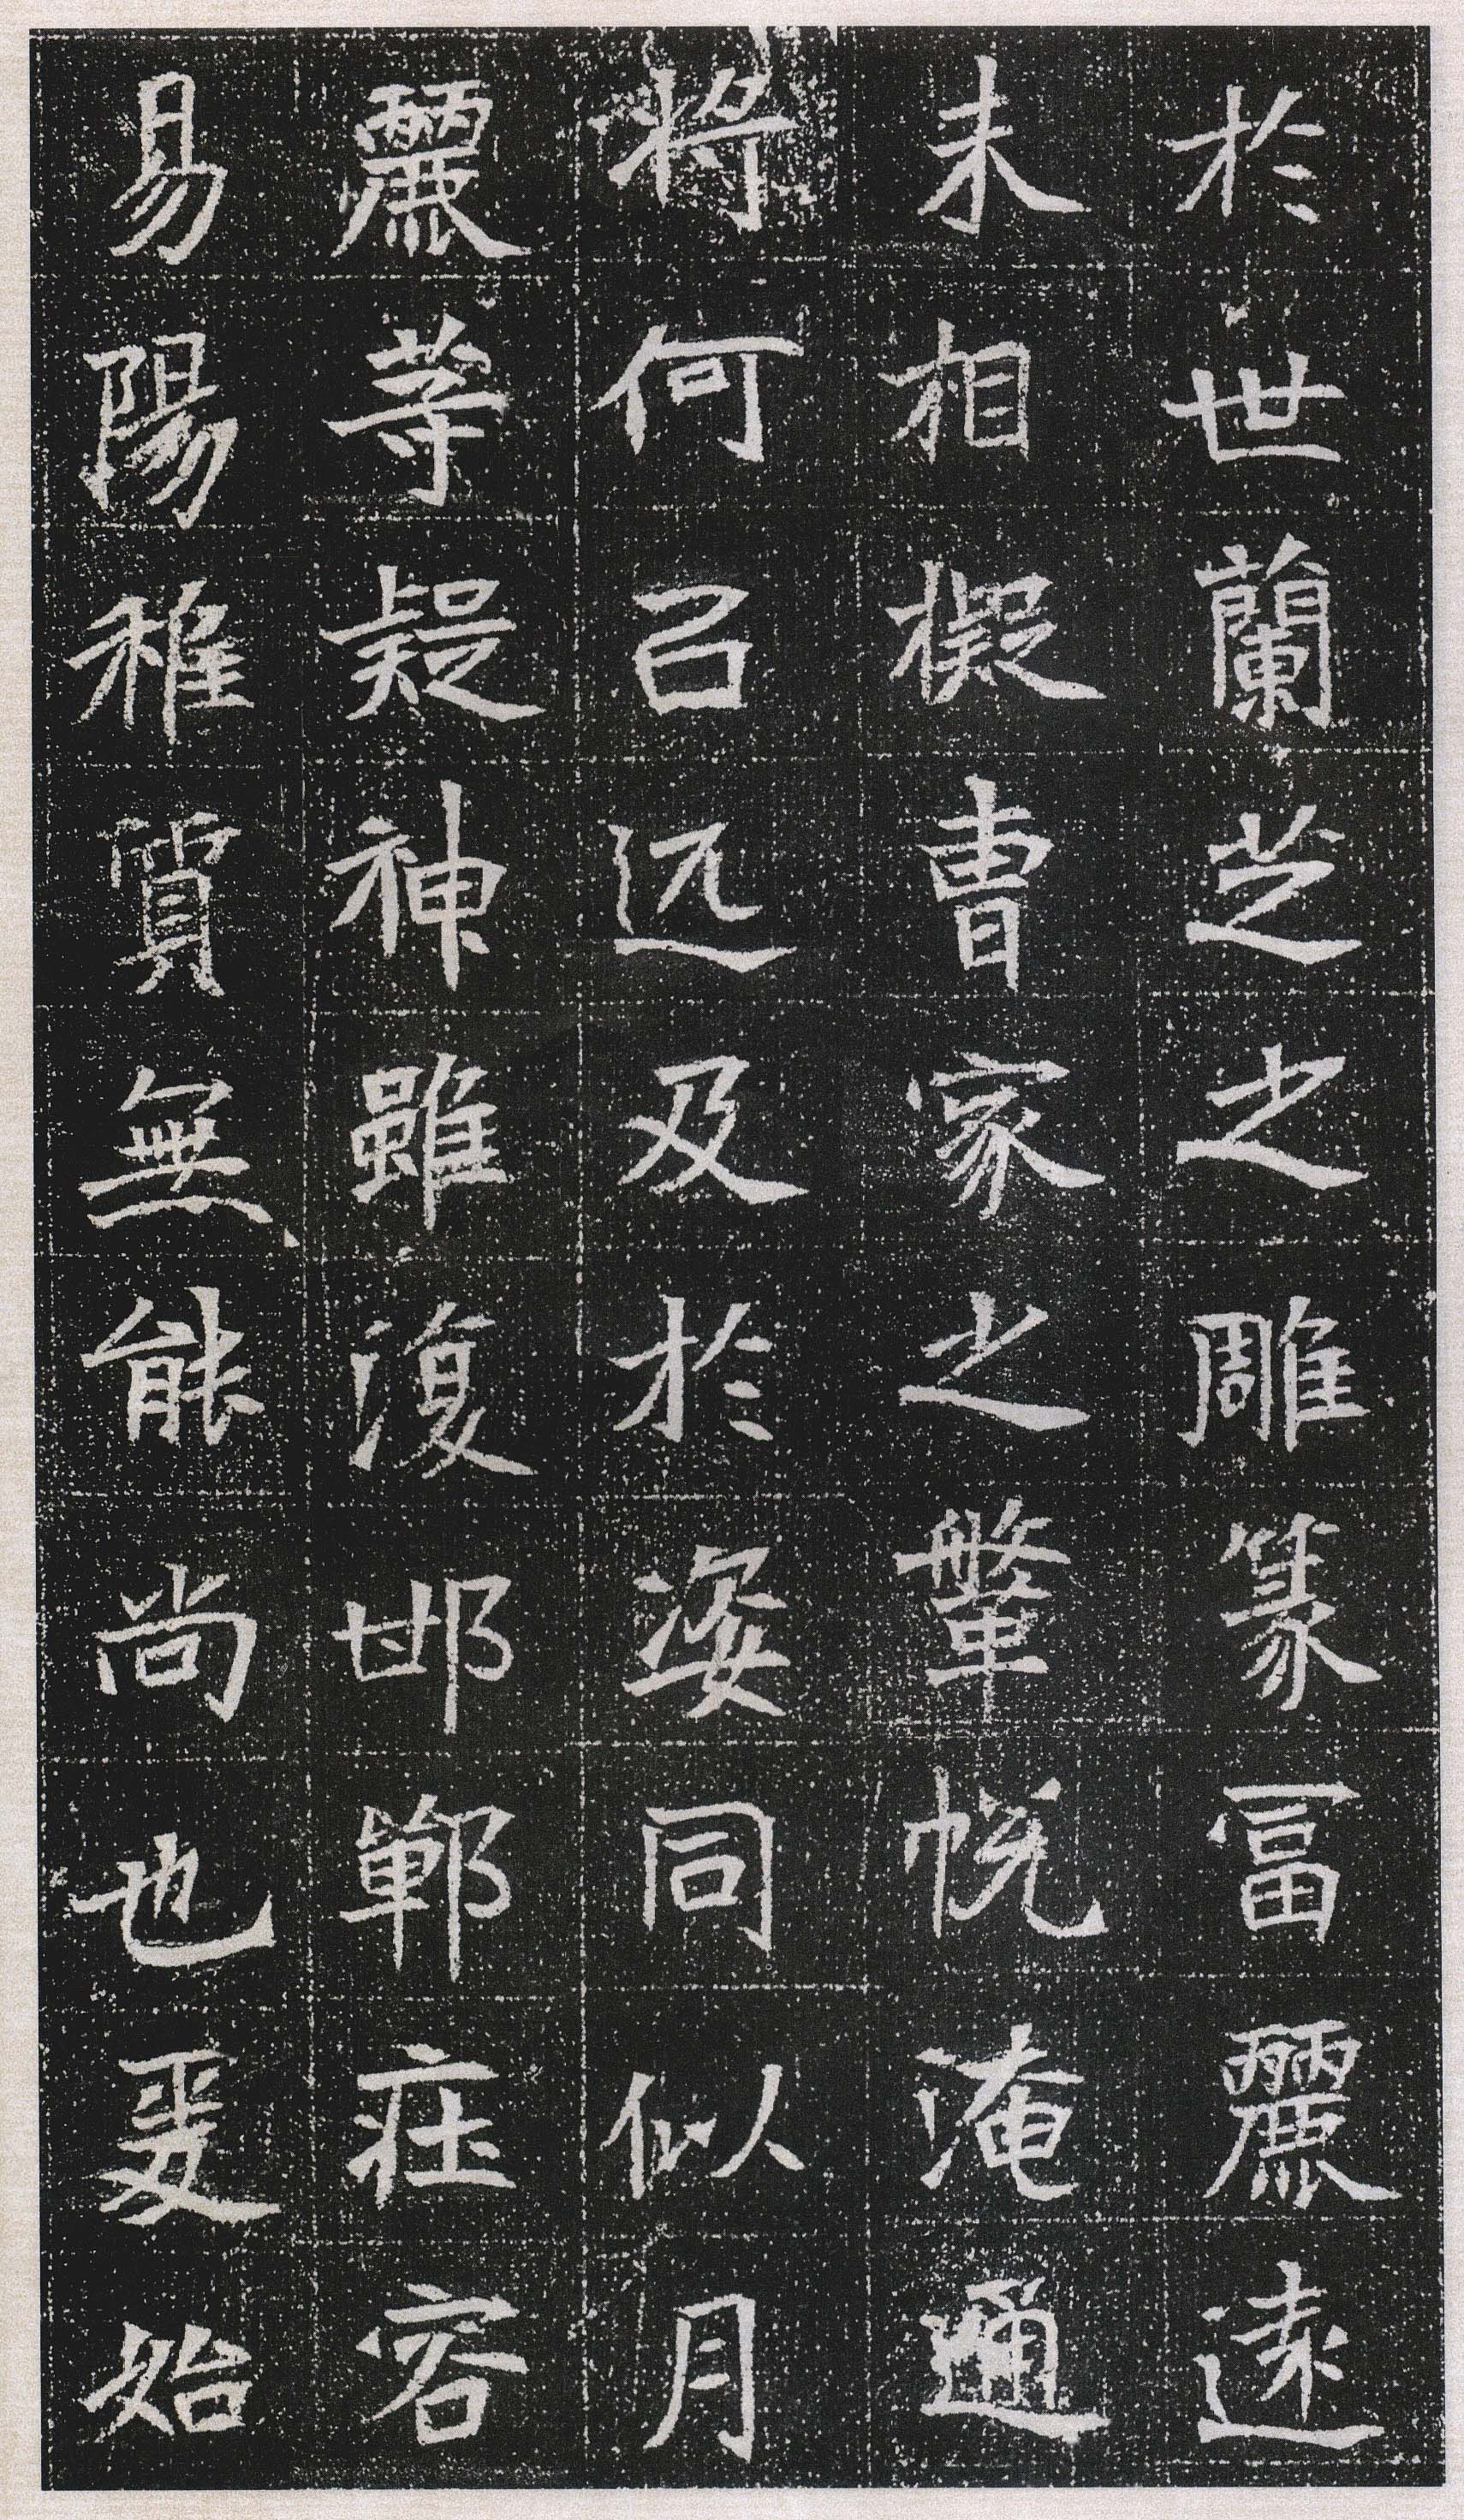 於世蘭芝之雕篆富麗遠
未相擬曹家之鞶帨淹通
將何以遠及於姿同似月
麗等疑神雖復邯鄲莊容
易陽稚質無能尚也爰始